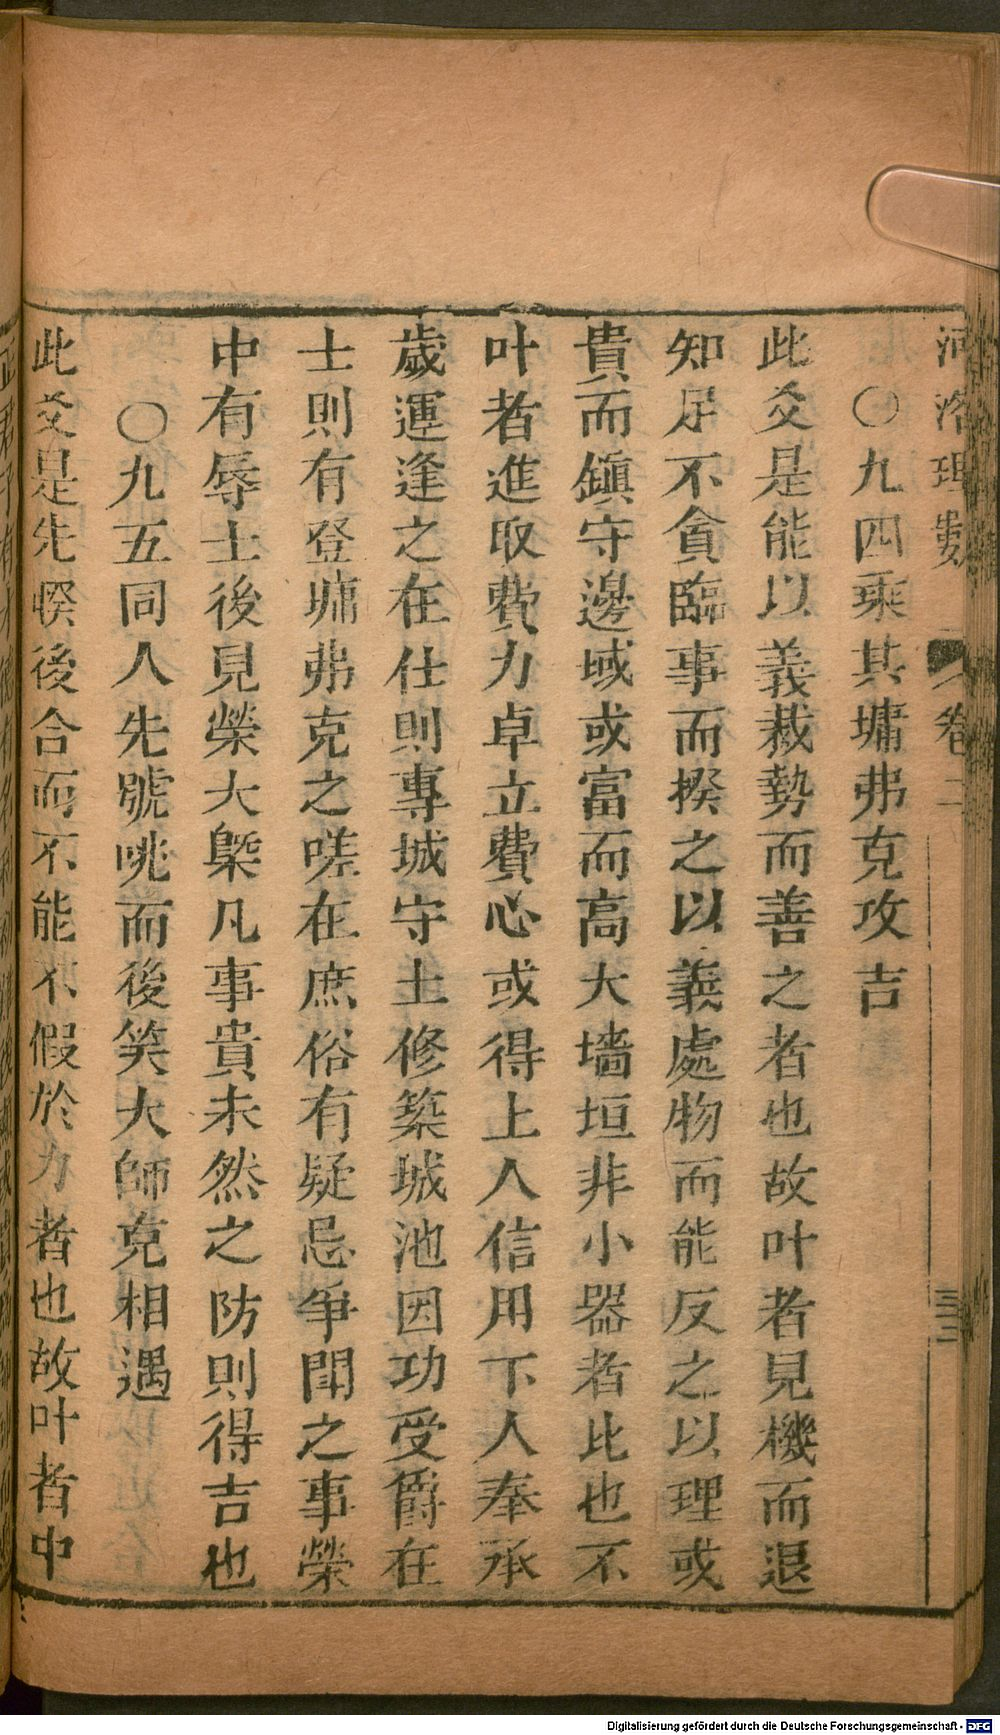 河洛理數 卷二 三三
〇九四乘其墉弗克攻吉
此爻是能以義裁勢而善之者也故叶者見機而退
知足不貪臨事而揆之以義處物而能反之以理或
貴而鎮守邊域或富而高大墻垣非小器者比也不
叶者進取費力卓立費心或得上人信用下人奉承
歲運逢之在仕則專城守土修築城池因功受爵在
士則有登墉弗克之嗟在庶俗有疑忌爭鬪之事榮
中有辱士後見榮大槩凡事貴未然之防則得吉也
〇九五同人先號咷而後笑大師克相遇
此爻是先暌後合而不能不假於力者也故叶者中
Digitalisierung gefördert durch die Deutsche Forschungsgemeinschaft - DFG